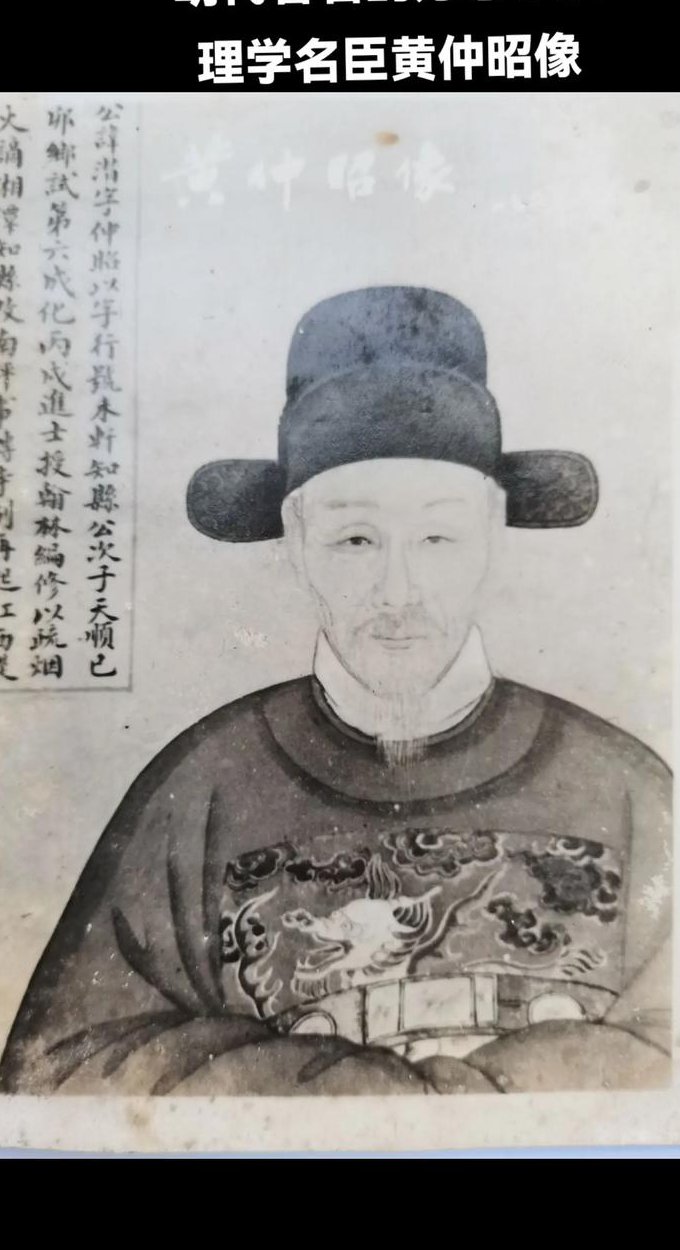 理学名臣黄仲昭像
黄仲昭像
公諱潛字仲昭以字行號未軒知縣公次子天順己
卯鄉試第六成化丙戌進士授翰林編修以疏烟
火謫湘潭知縣改南評事轉寺副再起江西提